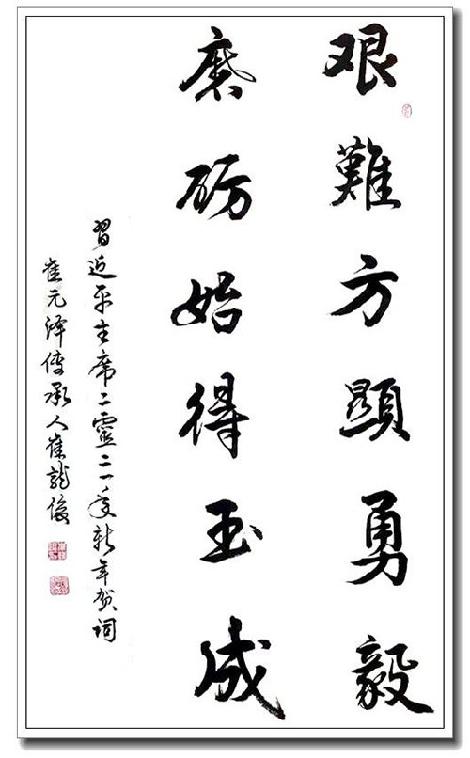 艰難方顯勇毅
磨砺始得玉成
習近平主席二零二一年新年贺词
崔元 傳承人崔龍俊